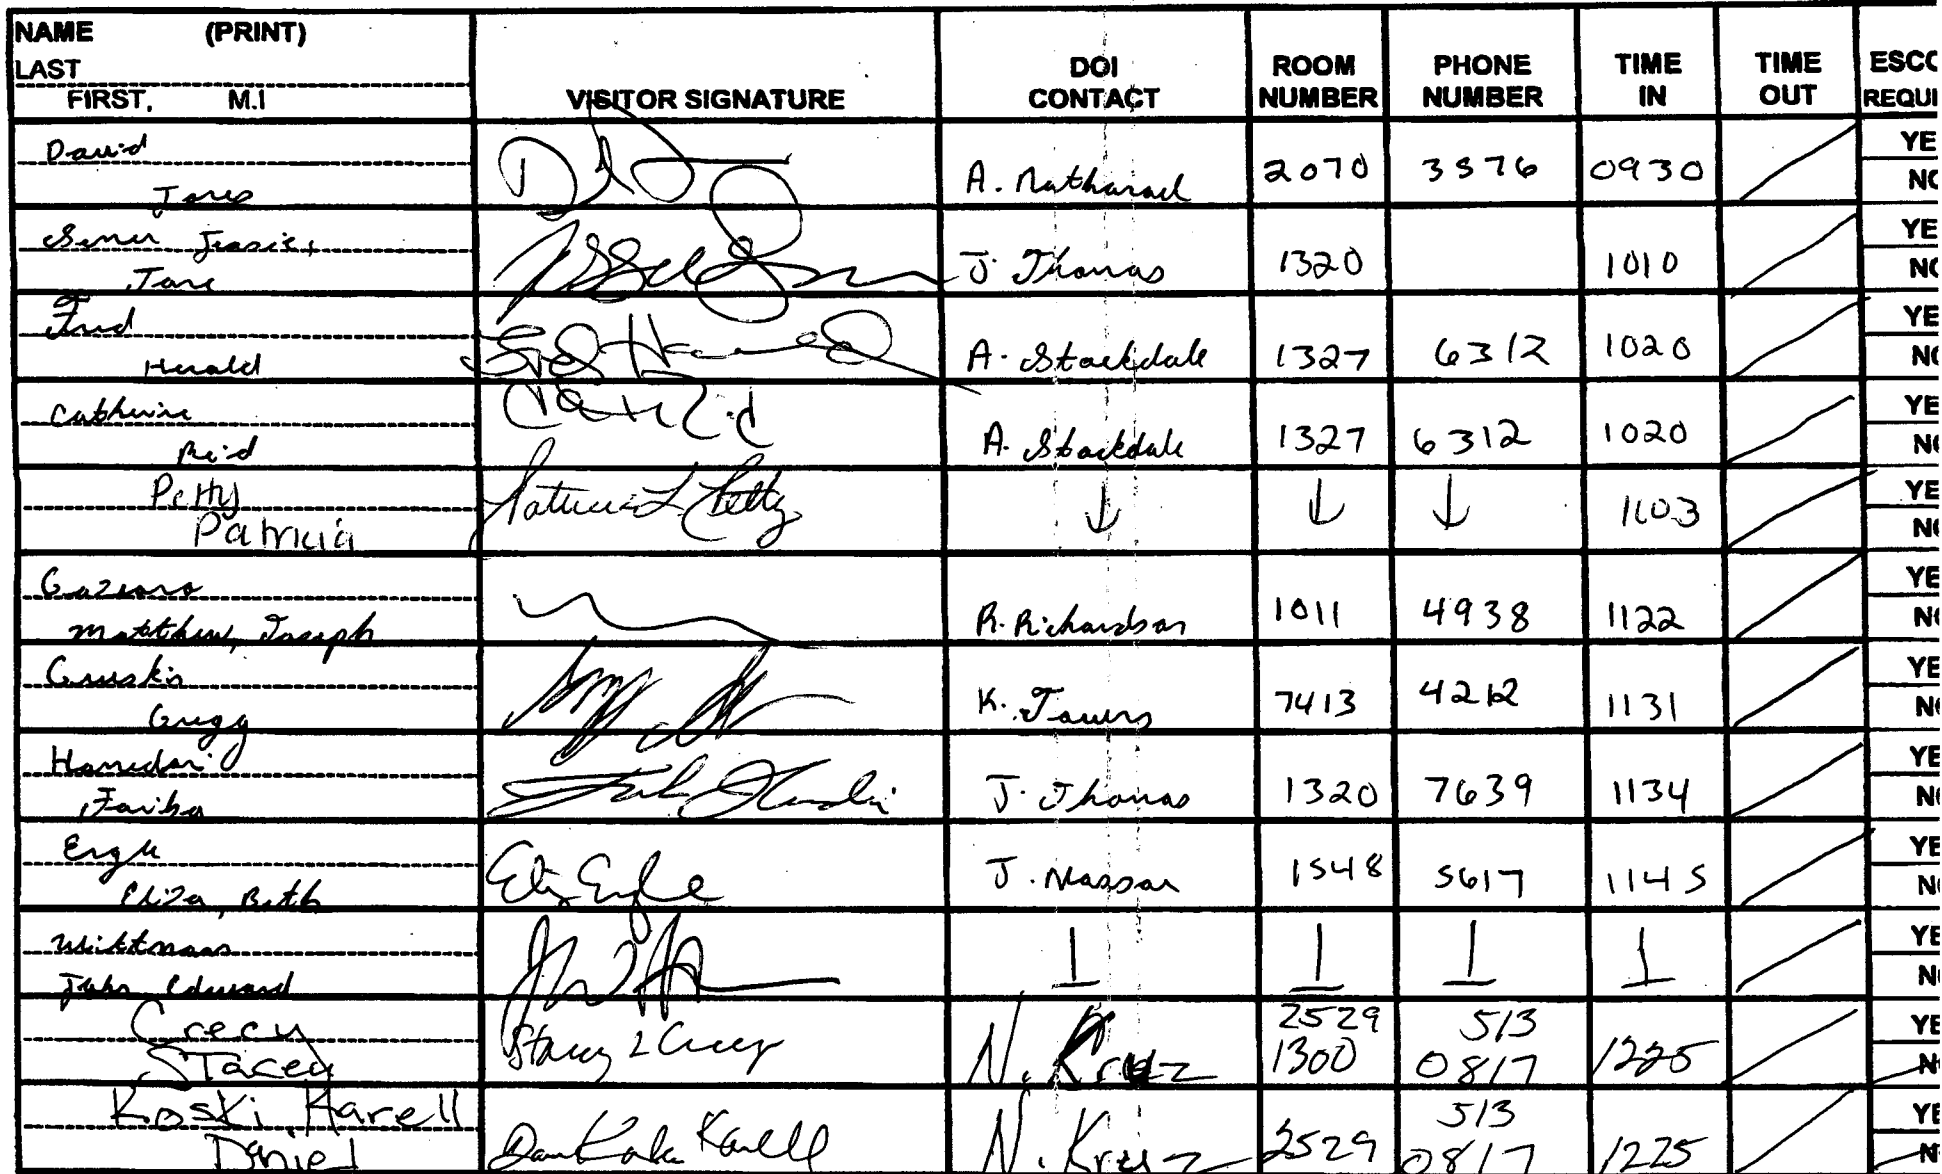 NAME (PRINT)
LAST
FIRST, M.I
VISITOR SIGNATURE
DOI CONTACT
ROOM NUMBER
PHONE NUMBER
TIME IN
TIME OUT
ESCO
REQUI
David
A. 2070 3576 0930
YE
NO
Jessie,
J. Thomas 1320 1010
YE
NO
Fred
Herald
A. Stockdale 1327 6312 1020
YE
NO
Catherine
Reid
A. Stockdale 1327 6312 1020
YE
NO
Petty
Patricia
Patricia L Petty
↓ ↓ ↓ 1103
YE
NO
Matthew, Joseph
R. Richardson 1011 4938 1122
YE
NO
Gruskin
Gregg
K. Towers 7413 4212 1131
YE
NO
Hamedani
Fariba
J. Thomas 1320 7639 1134
YE
NO
Engle
Eliza, Beth
Eliz Engle
J. 1548 5617 1145
YE
NO
Wittmann
John Edward
YE
NO
Crecy
Stacey
Stacey L Crecy
N. Kruz 2529 1300 513 0817 1225
YE
NO
Koski, Harell
Daniel
N. Kruz 2529 513 0817 1225
YE
N